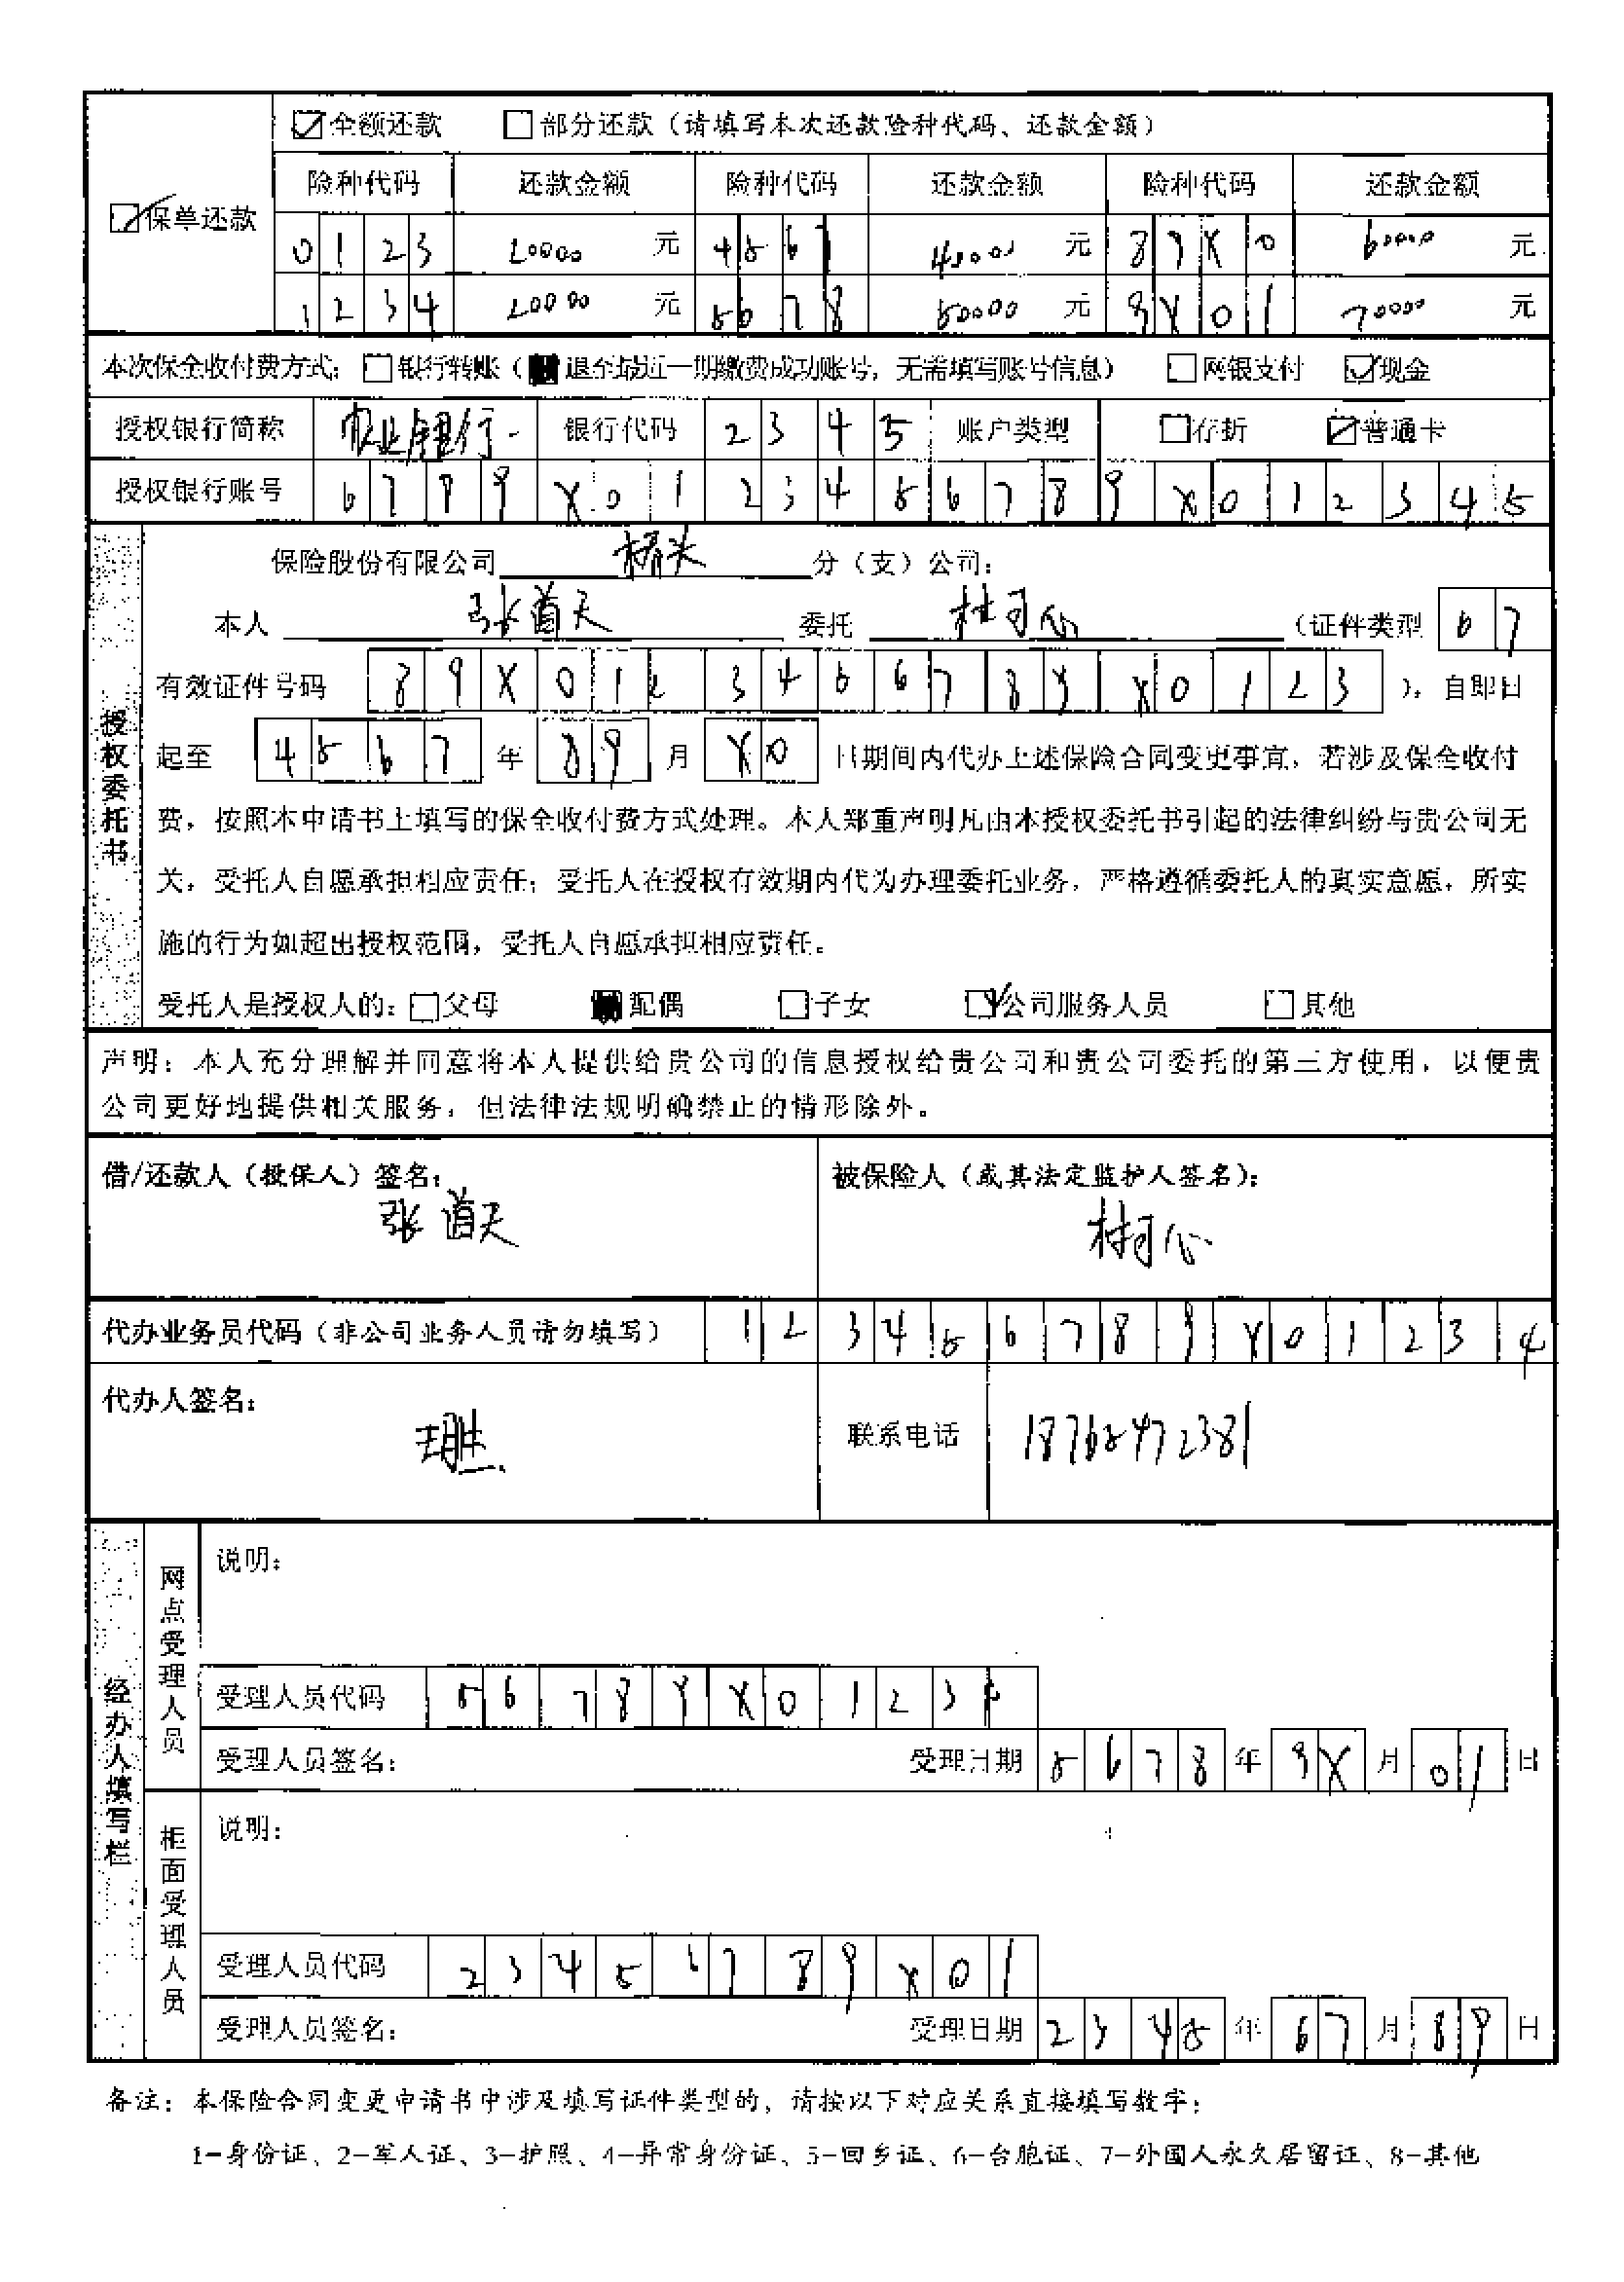 ☑全额还款 ☐部分还款（请填写本次还款险种代码、还款金额）
☑保单还款
险种代码 还款金额 险种代码 还款金额 险种代码 还款金额
0123 20000 元 4567 40000 元 89X0 60000 元
1234 20000 元 5678 50000 元 9X01 70000 元
本次保全收付费方式：☐银行转账（■退至最近一期缴费成功账号，无需填写账号信息） ☐网银支付 ☑现金
授权银行简称 农业银行 银行代码 2345 账户类型 ☐存折 ☑普通卡
授权银行账号 6789X0123456789X012345
授权委托书
保险股份有限公司 桥头 分（支）公司：
本人 张首天 委托 杜可心 （证件类型 67
有效证件号码 89X0123456789X0123 ），自即日
起至 4567 年 89 月 X0 日期间内代办上述保险合同变更事宜，若涉及保全收付
费，按照本申请书上填写的保全收付费方式处理。本人郑重声明凡由本授权委托书引起的法律纠纷与贵公司无
关，受托人自愿承担相应责任；受托人在授权有效期内代为办理委托业务，严格遵循委托人的真实意愿，所实
施的行为如超出授权范围，受托人自愿承担相应责任。
受托人是授权人的：☐父母 ■配偶 ☐子女 ☑公司服务人员 ☐其他
声明：本人充分理解并同意将本人提供给贵公司的信息授权给贵公司和贵公司委托的第三方使用，以便贵
公司更好地提供相关服务，但法律法规明确禁止的情形除外。
借/还款人（投保人）签名： 被保险人（或其法定监护人签名）：
张首天 杜可心
代办业务员代码（非公司业务人员请勿填写） 123456789X01234
代办人签名：
联系电话 18762472381
经办人填写栏
网点受理人员
说明：
受理人员代码 56789X01234
受理人员签名： 受理日期 5678 年 9X 月 01 日
柜面受理人员
说明：
受理人员代码 23456789X01
受理人员签名： 受理日期 2345 年 67 月 89 日
备注：本保险合同变更申请书中涉及填写证件类型的，请按以下对应关系直接填写数字：
1-身份证、2-军人证、3-护照、4-异常身份证、5-回乡证、6-台胞证、7-外国人永久居留证、8-其他